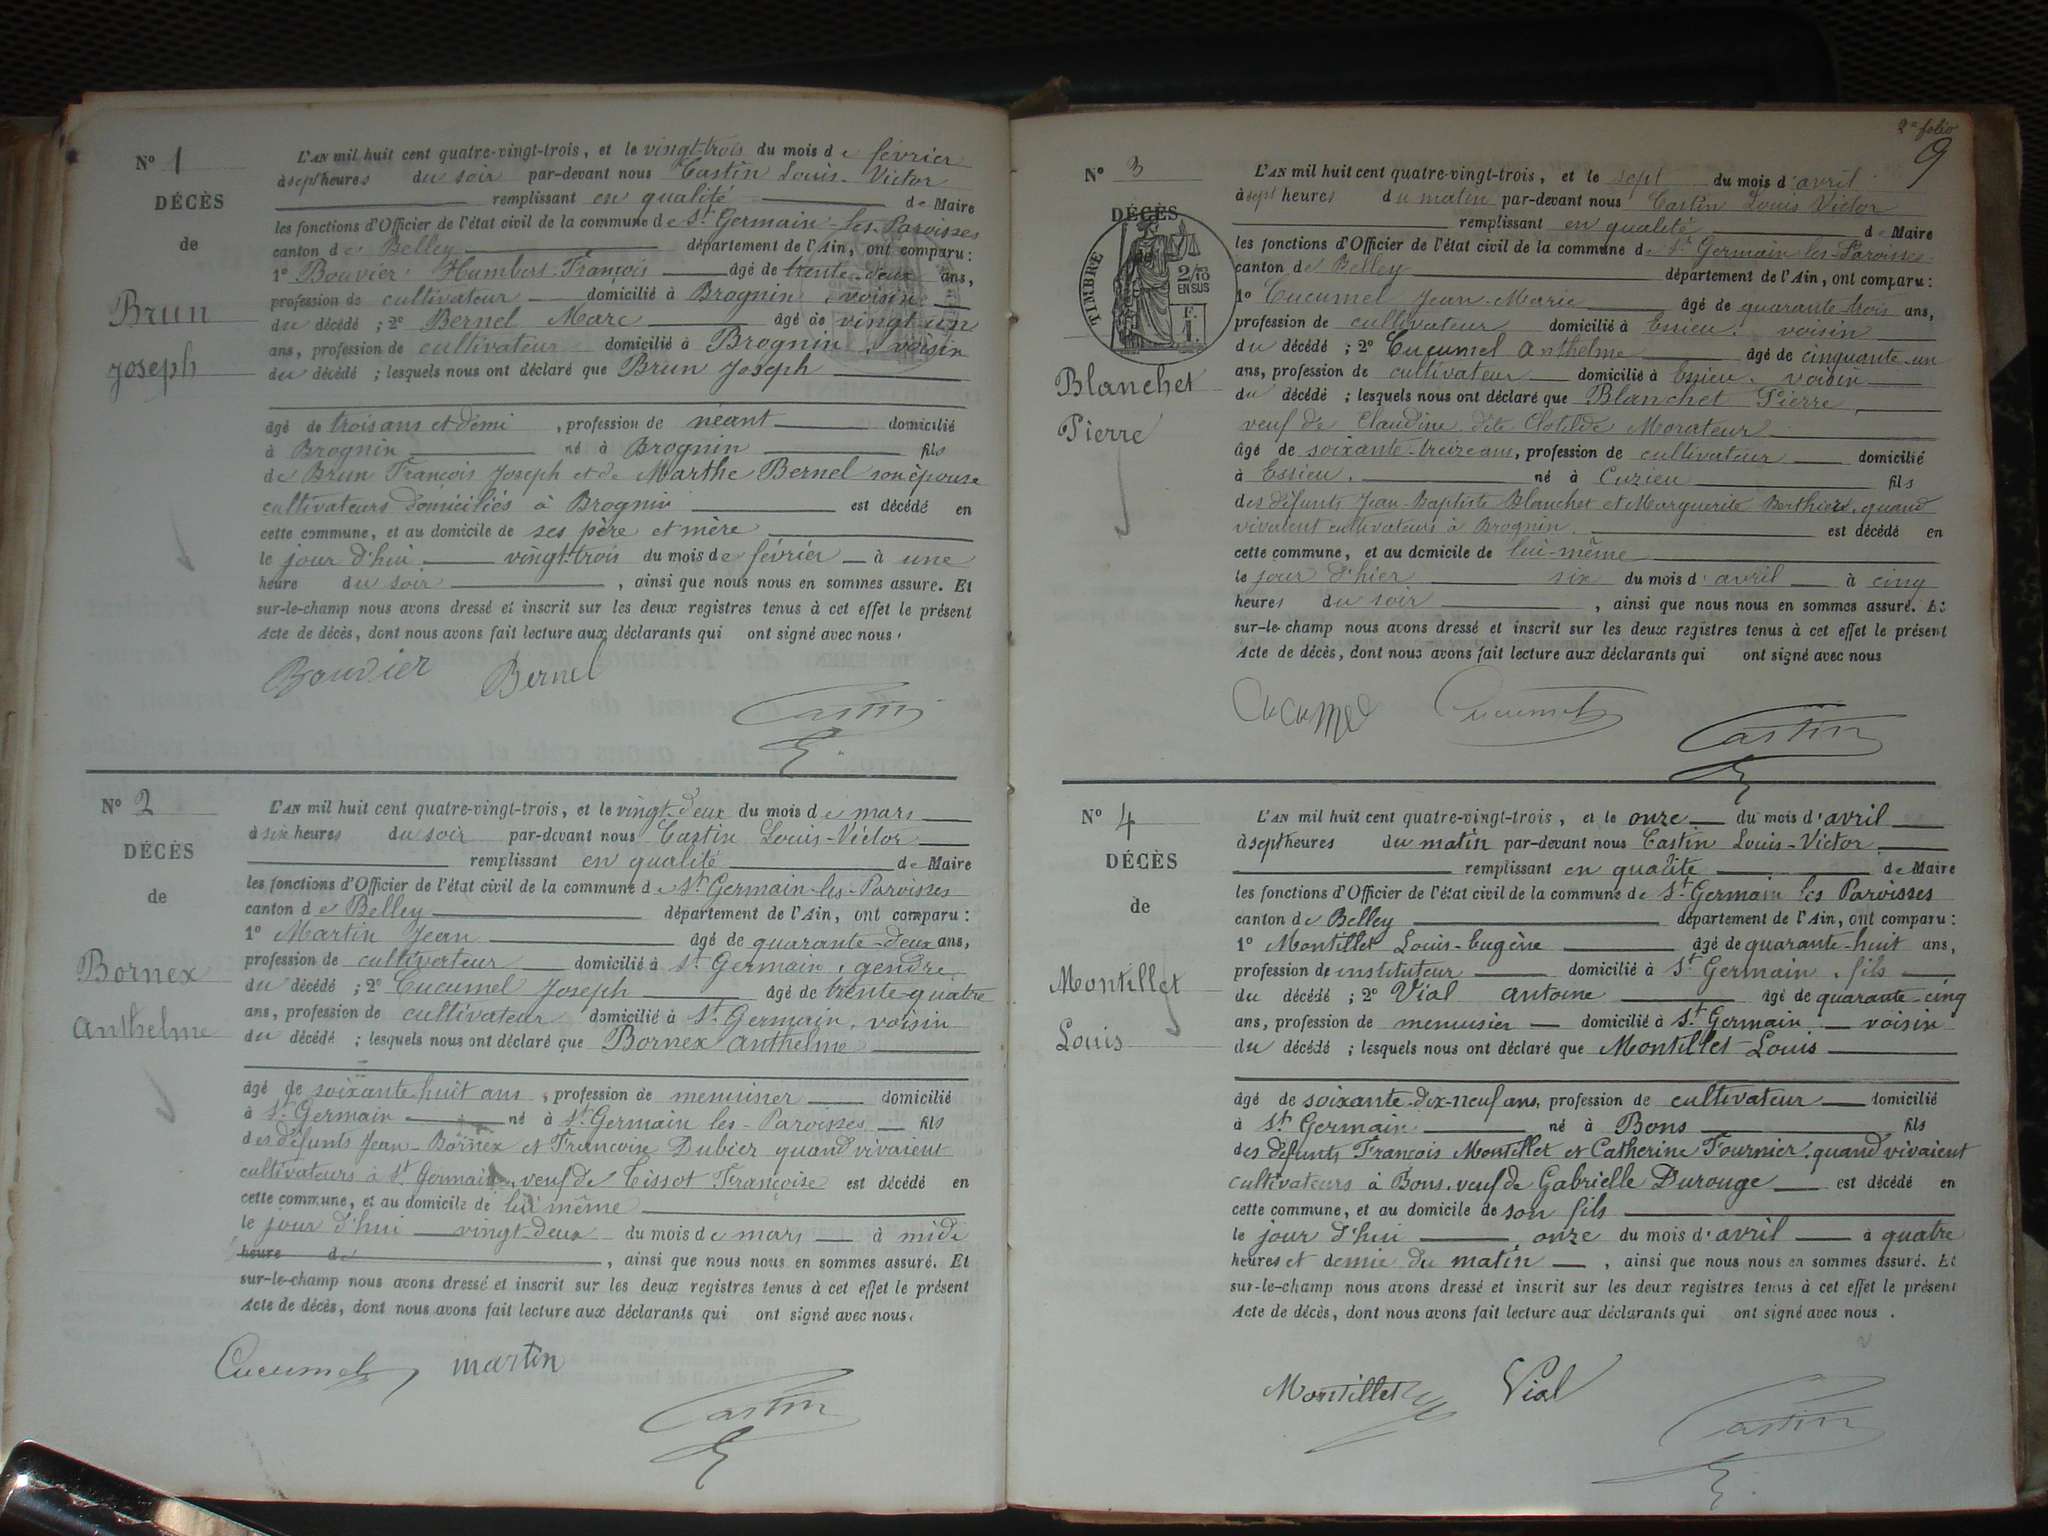 N° 1
DÉCÈS
de
Brun
Joseph
L'AN mil huit cent quatre-vingt-trois, et le vingt-trois du mois de février
à sept heures du soir par-devant nous Castin Louis-Victor
remplissant en qualité de Maire
les fonctions d'Officier de l'état civil de la commune de St Germain-les-Paroisses
canton de Belley département de l'Ain, ont comparu :
1° Bouvier Humbert-François âgé de trente-deux ans,
profession de cultivateur domicilié à Brognin, voisin
du décédé ; 2° Bernel Marc âgé de vingt-un
ans, profession de cultivateur domicilié à Brognin, voisin
du décédé ; lesquels nous ont déclaré que Brun Joseph
âgé de trois ans et demi, profession de néant domicilié
à Brognin né à Brognin fils
de Brun François Joseph et de Marthe Bernel son épouse
cultivateurs domiciliés à Brognin est décédé en
cette commune, et au domicile de ses père et mère
le jour d'hui vingt-trois du mois de février à une
heure du soir, ainsi que nous nous en sommes assuré. Et
sur-le-champ nous avons dressé et inscrit sur les deux registres tenus à cet effet le présent
Acte de décès, dont nous avons fait lecture aux déclarants qui ont signé avec nous.
Bouvier Bernel
Castin
N° 2
DÉCÈS
de
Bornex
Anthelme
L'AN mil huit cent quatre-vingt-trois, et le vingt-deux du mois de mars
à six heures du soir par-devant nous Castin Louis-Victor
remplissant en qualité de Maire
les fonctions d'Officier de l'état civil de la commune de St Germain-les-Paroisses
canton de Belley département de l'Ain, ont comparu :
1° Martin Jean âgé de quarante-deux ans,
profession de cultivateur domicilié à St Germain, gendre
du décédé ; 2° Cucumel Joseph âgé de trente-quatre
ans, profession de cultivateur domicilié à St Germain, voisin
du décédé ; lesquels nous ont déclaré que Bornex Anthelme
âgé de soixante huit ans, profession de menuisier domicilié
à St Germain né à St Germain les-Paroisses fils
des défunts Jean-Bornex et Françoise Dubier quand vivaient
cultivateurs à St Germain, veuf de Tissot Françoise est décédé en
cette commune, et au domicile de lui même
le jour d'hui vingt-deux du mois de mars à midi
heure de, ainsi que nous nous en sommes assuré. Et
sur-le-champ nous avons dressé et inscrit sur les deux registres tenus à cet effet le présent
Acte de décès, dont nous avons fait lecture aux déclarants qui ont signé avec nous.
Cucumel martin
Castin
2e folio
9
N° 3
DÉCÈS
TIMBRE
2/10
EN SUS
F.
1.
Blanchet
Pierre
L'AN mil huit cent quatre-vingt-trois, et le sept du mois d'avril
à sept heures du matin par-devant nous Castin Louis Victor
remplissant en qualité de Maire
les fonctions d'Officier de l'état civil de la commune de St Germain-les-Paroisses
canton de Belley département de l'Ain, ont comparu :
1° Cucumel Jean-Marie âgé de quarante trois ans,
profession de cultivateur domicilié à Essieu, voisin
du décédé ; 2° Cucumel Anthelme âgé de cinquante-un
ans, profession de cultivateur domicilié à Essieu, voisin
du décédé ; lesquels nous ont déclaré que Blanchet Pierre,
veuf de Claudine dite Clotilde Morateur
âgé de soixante-treize ans, profession de cultivateur domicilié
à Essieu, né à Cuzieu fils
des défunts Jean-Baptiste Blanchet et Marguerite Berthier, quand
vivaient cultivateurs à Brognin est décédé en
cette commune, et au domicile de lui-même
le jour d'hier six du mois d'avril à cinq
heures du soir, ainsi que nous nous en sommes assuré. Et
sur-le-champ nous avons dressé et inscrit sur les deux registres tenus à cet effet le présent
Acte de décès, dont nous avons fait lecture aux déclarants qui ont signé avec nous
Cucumel Cucumel
Castin
N° 4
DÉCÈS
de
Montillet
Louis
L'AN mil huit cent quatre-vingt-trois, et le onze du mois d'avril
à sept heures du matin par-devant nous Castin Louis-Victor
remplissant en qualité de Maire
les fonctions d'Officier de l'état civil de la commune de St Germain les Paroisses
canton de Belley département de l'Ain, ont comparu :
1° Montillet Louis-Eugène âgé de quarante-huit ans,
profession de instituteur domicilié à St Germain, fils
du décédé ; 2° Vial Antoine âgé de quarante-cinq
ans, profession de menuisier domicilié à St Germain voisin
du décédé ; lesquels nous ont déclaré que Montillet Louis
âgé de soixante-dix-neuf ans, profession de cultivateur domicilié
à St Germain né à Bons fils
des défunts François Montillet et Catherine Fournier, quand vivaient
cultivateurs à Bons, veuf de Gabrielle Durouge est décédé en
cette commune, et au domicile de son fils
le jour d'hui onze du mois d'avril à quatre
heures et demie du matin, ainsi que nous nous en sommes assuré. Et
sur-le-champ nous avons dressé et inscrit sur les deux registres tenus à cet effet le présent
Acte de décès, dont nous avons fait lecture aux déclarants qui ont signé avec nous.
Montillet Vial
Castin